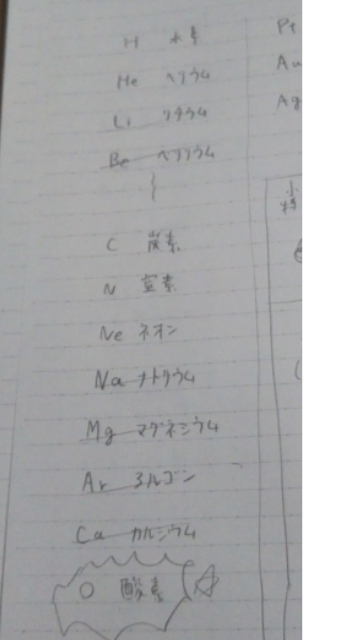 H 水素
He ヘリウム
Li リチウム
Be ベリリウム
C 炭素
N 窒素
Ne ネオン
Na ナトリウム
Mg マグネシウム
Ar アルゴン
Ca カルシウム
O 酸素
Pt
Au
Ag